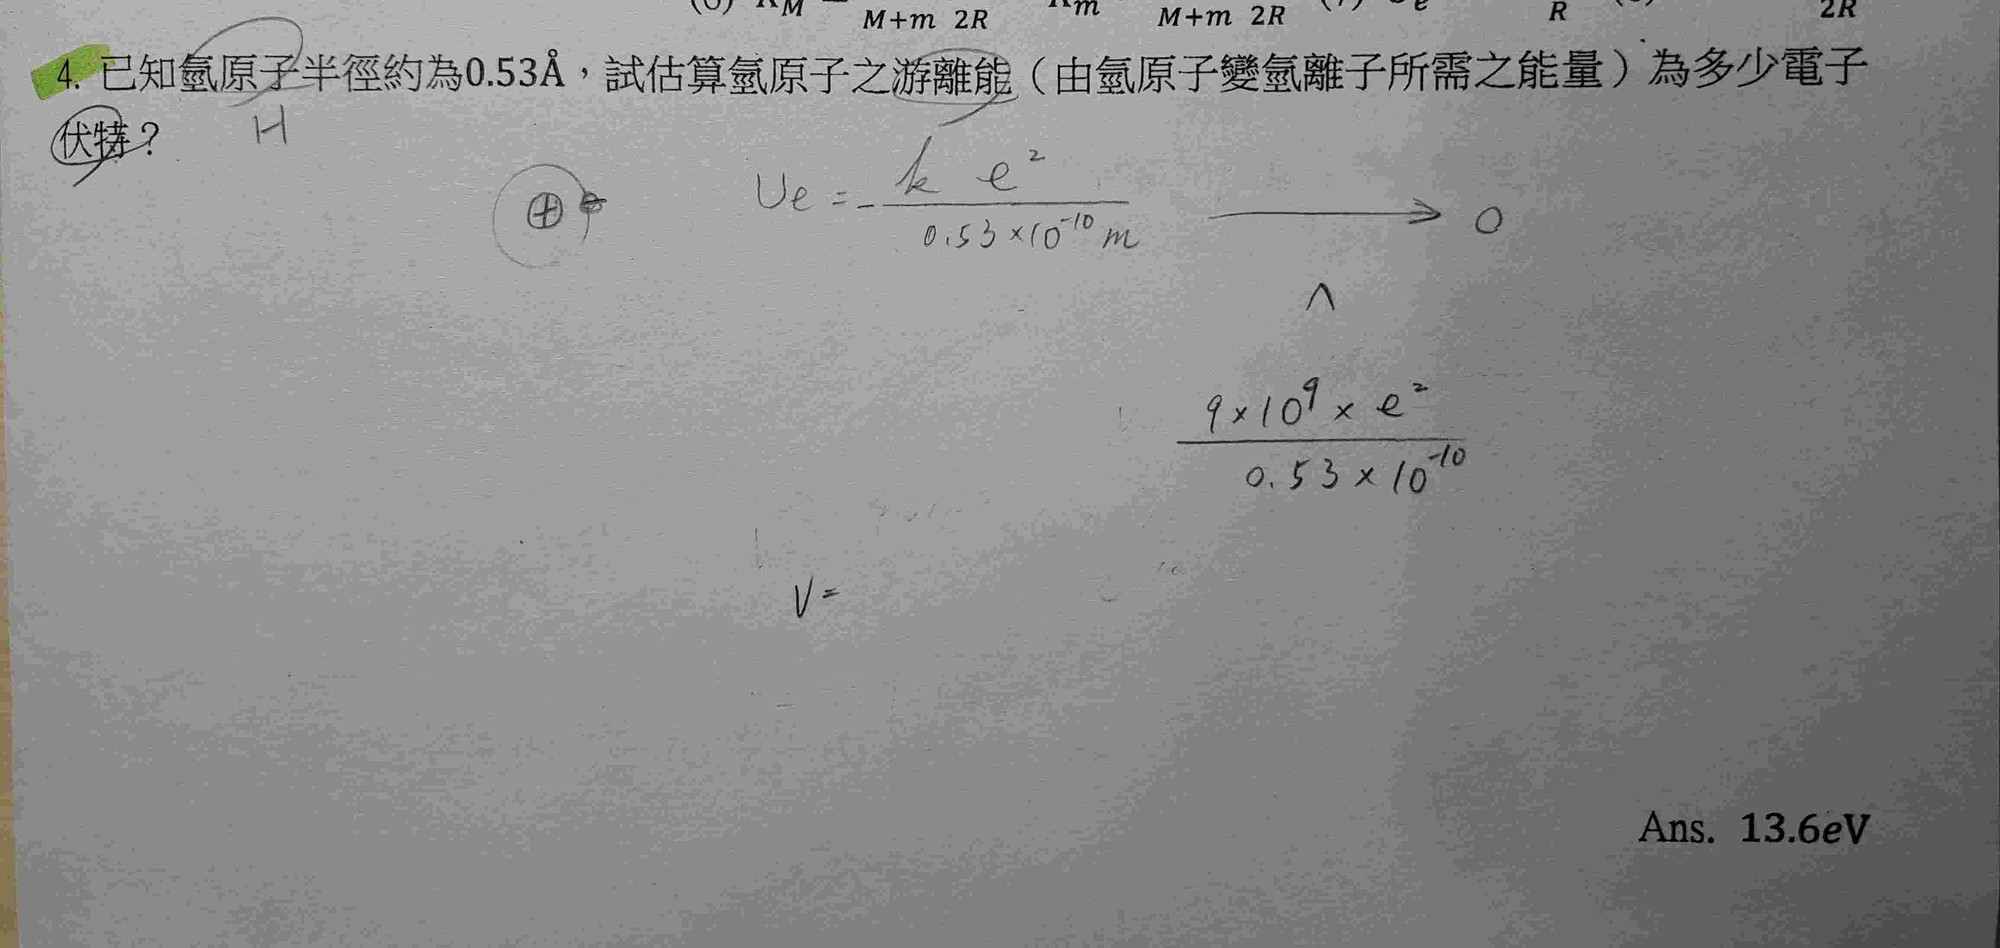 M+m 2R M+m 2R R 2R
4. 已知氫原子半徑約為0.53Å，試估算氫原子之游離能（由氫原子變氫離子所需之能量）為多少電子
伏特？
H
Ue = - k e² / 0.53×10⁻¹⁰ m → 0
∧
9×10⁹ × e² / 0.53×10⁻¹⁰
V=
Ans. 13.6eV